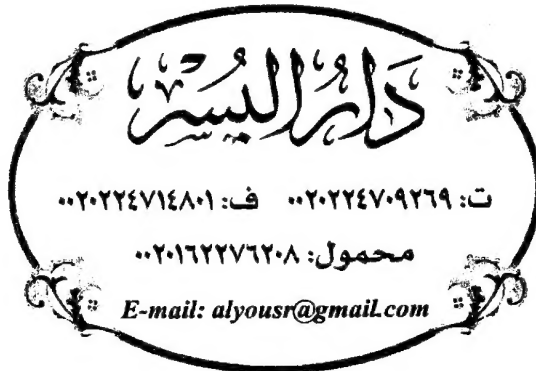 دَارُ اليُسْر
ت: ٠٠٢٠٢٢٤٧٠٩٢٦٩ ف: ٠٠٢٠٢٢٤٧١٤٨٠١
محمول: ٠٠٢٠١٦٢٢٧٦٢٠٨
E-mail: alyousr@gmail.com